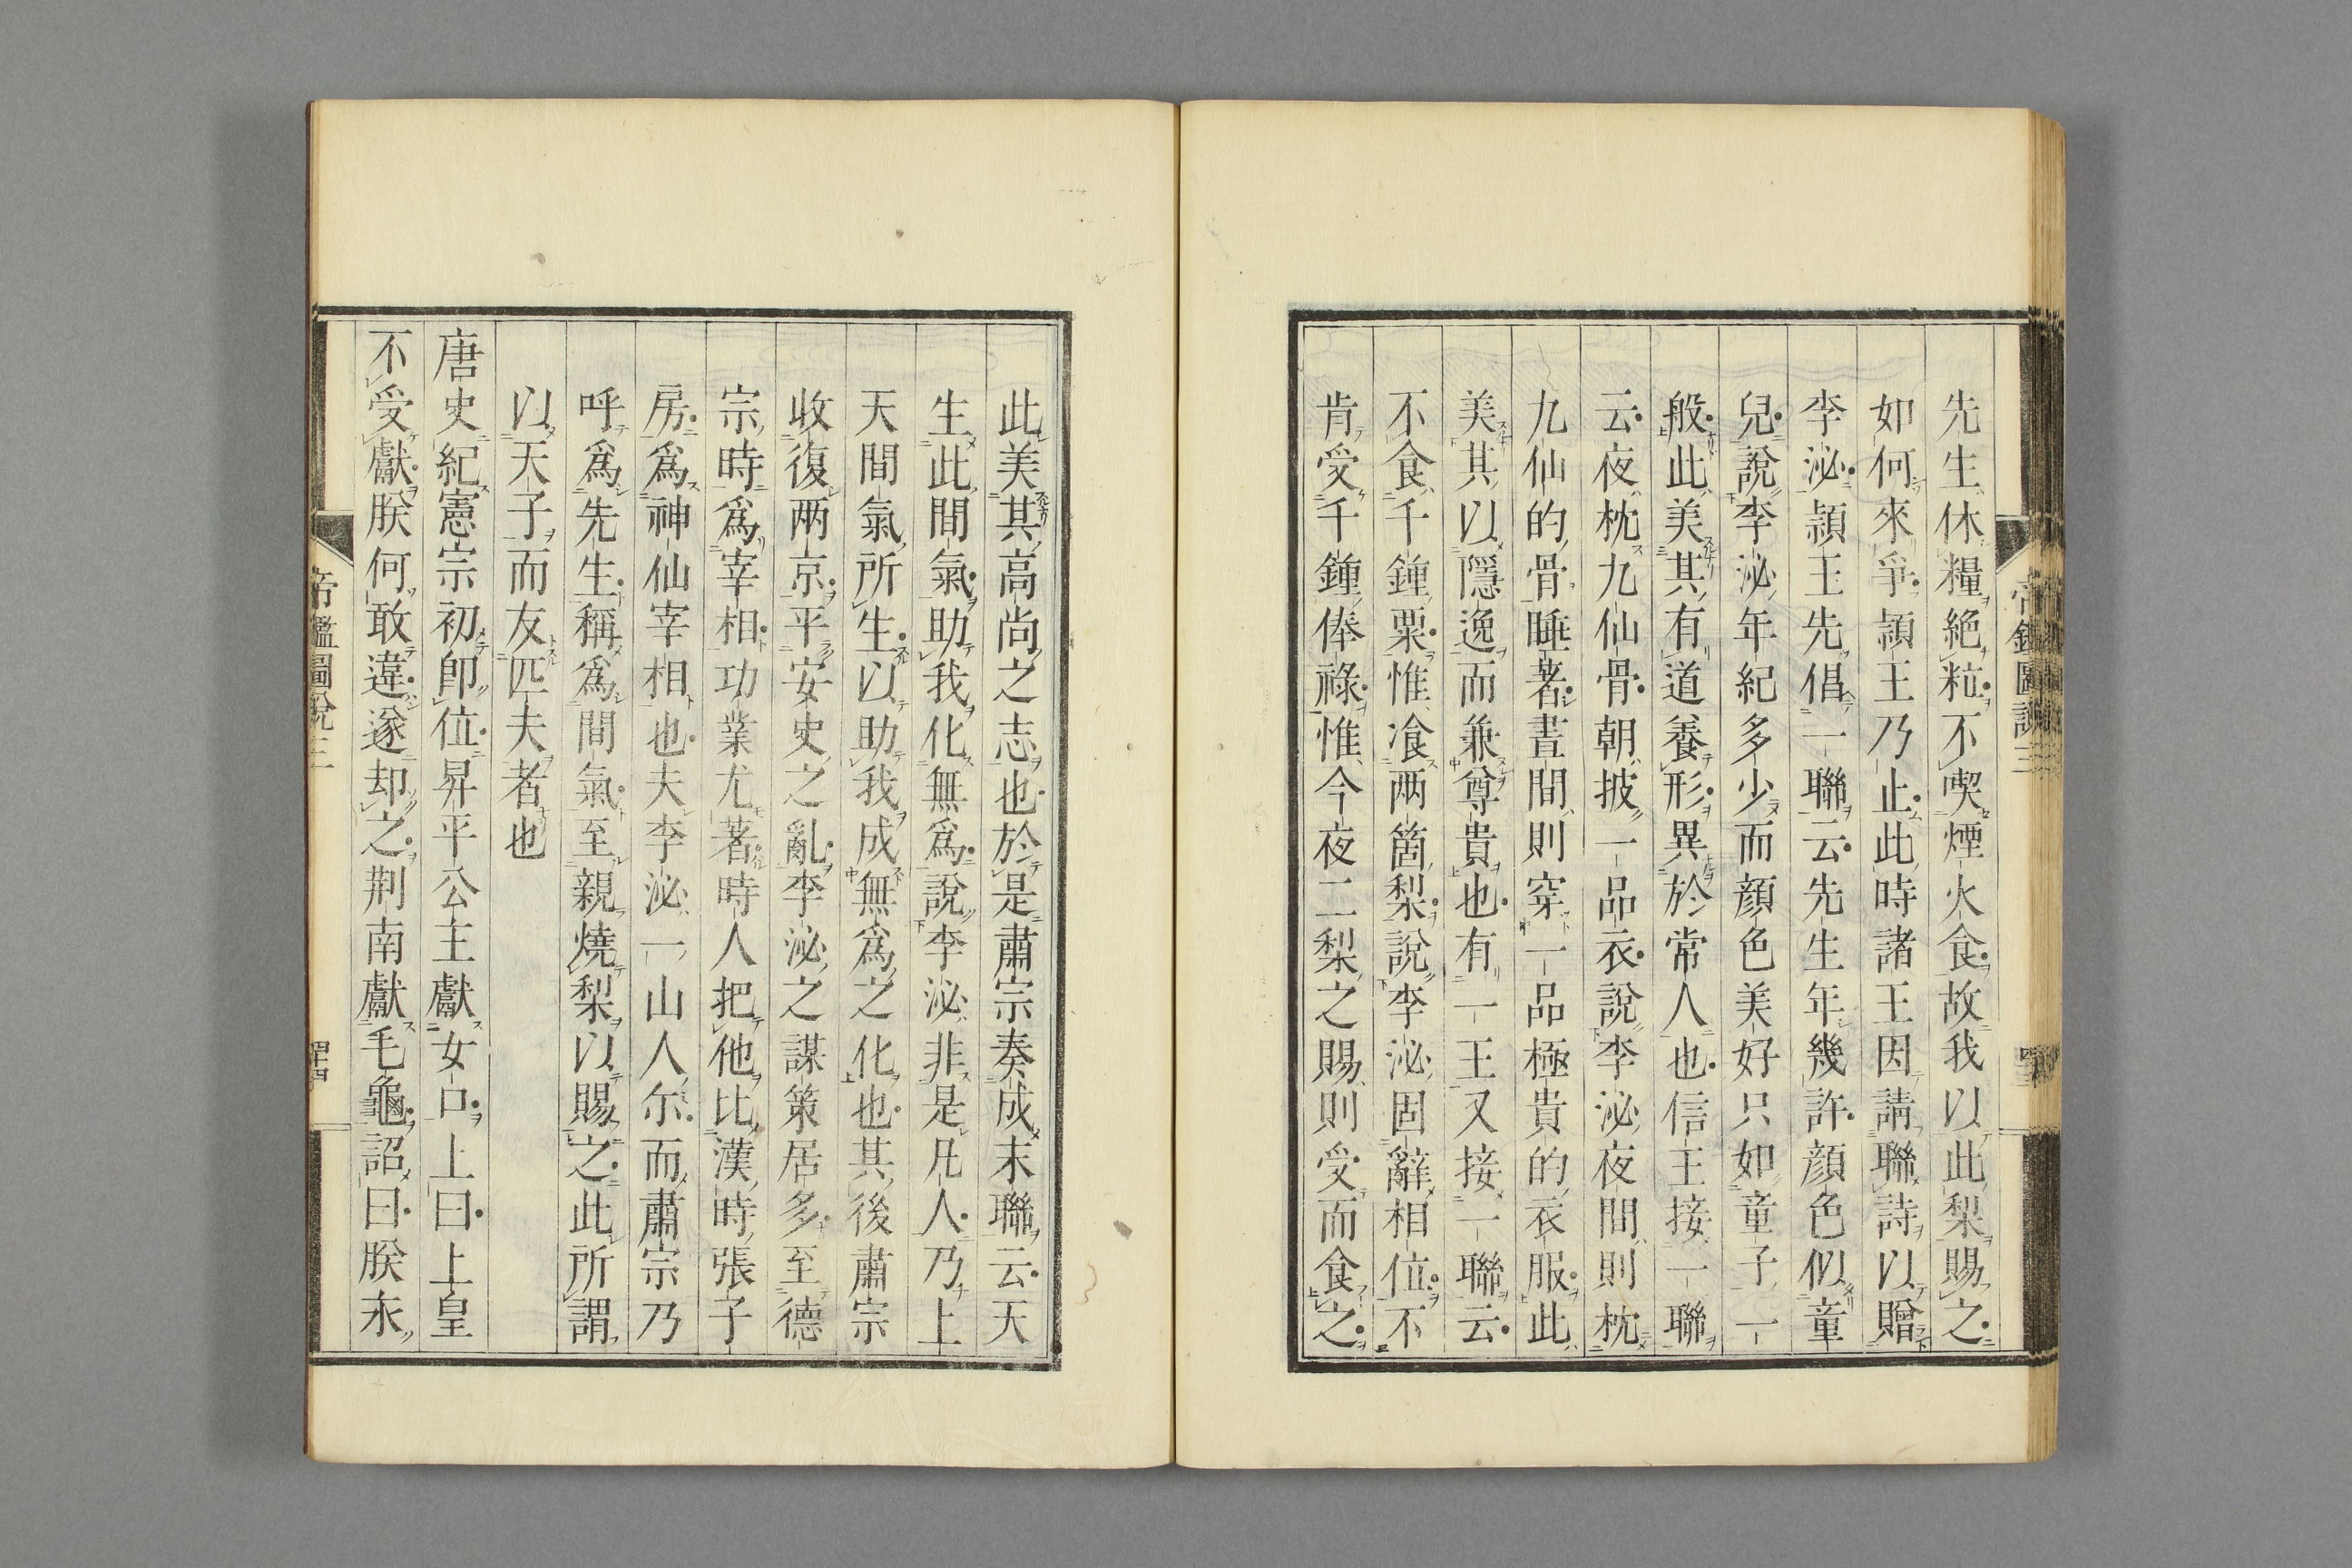 先生休糧絶粒不喫煙火食故我以此梨賜之
如何來爭頴王乃止此時諸王因請聯詩以贈
李泌頴王先倡一聯云先生年幾許顔色似童
兒說李泌年紀多少而顔色美好只如童子一
般此美其有道養形異於常人也信王接一聯
云夜枕九仙骨朝披一品衣說李泌夜間則枕
九仙的骨睡著晝間則穿一品極貴的衣服此
美其以隱逸而兼尊貴也有一王又接一聯云
不食千鍾粟惟飡两箇梨說李泌固辭相位不
肯受千鍾俸祿惟今夜二梨之賜則受而食之
此美其高尚之志也於是肅宗奏成末聯云天
生此間氣助我化無爲說李泌非是凡人乃上
天間氣所生以助我成無爲之化也其後肅宗
收復两京平安史之亂李泌之謀策居多至德
宗時爲宰相功業尤著時人把他比漢時張子
房爲神仙宰相也夫李泌一山人尓而肅宗乃
呼爲先生稱爲間氣至親燒梨以賜之此所謂
以天子而友匹夫者也
唐史紀憲宗初卽位昇平公主獻女口上曰上皇
不受獻朕何敢違遂却之荆南獻毛龜詔曰朕永
帝鑑圖說三